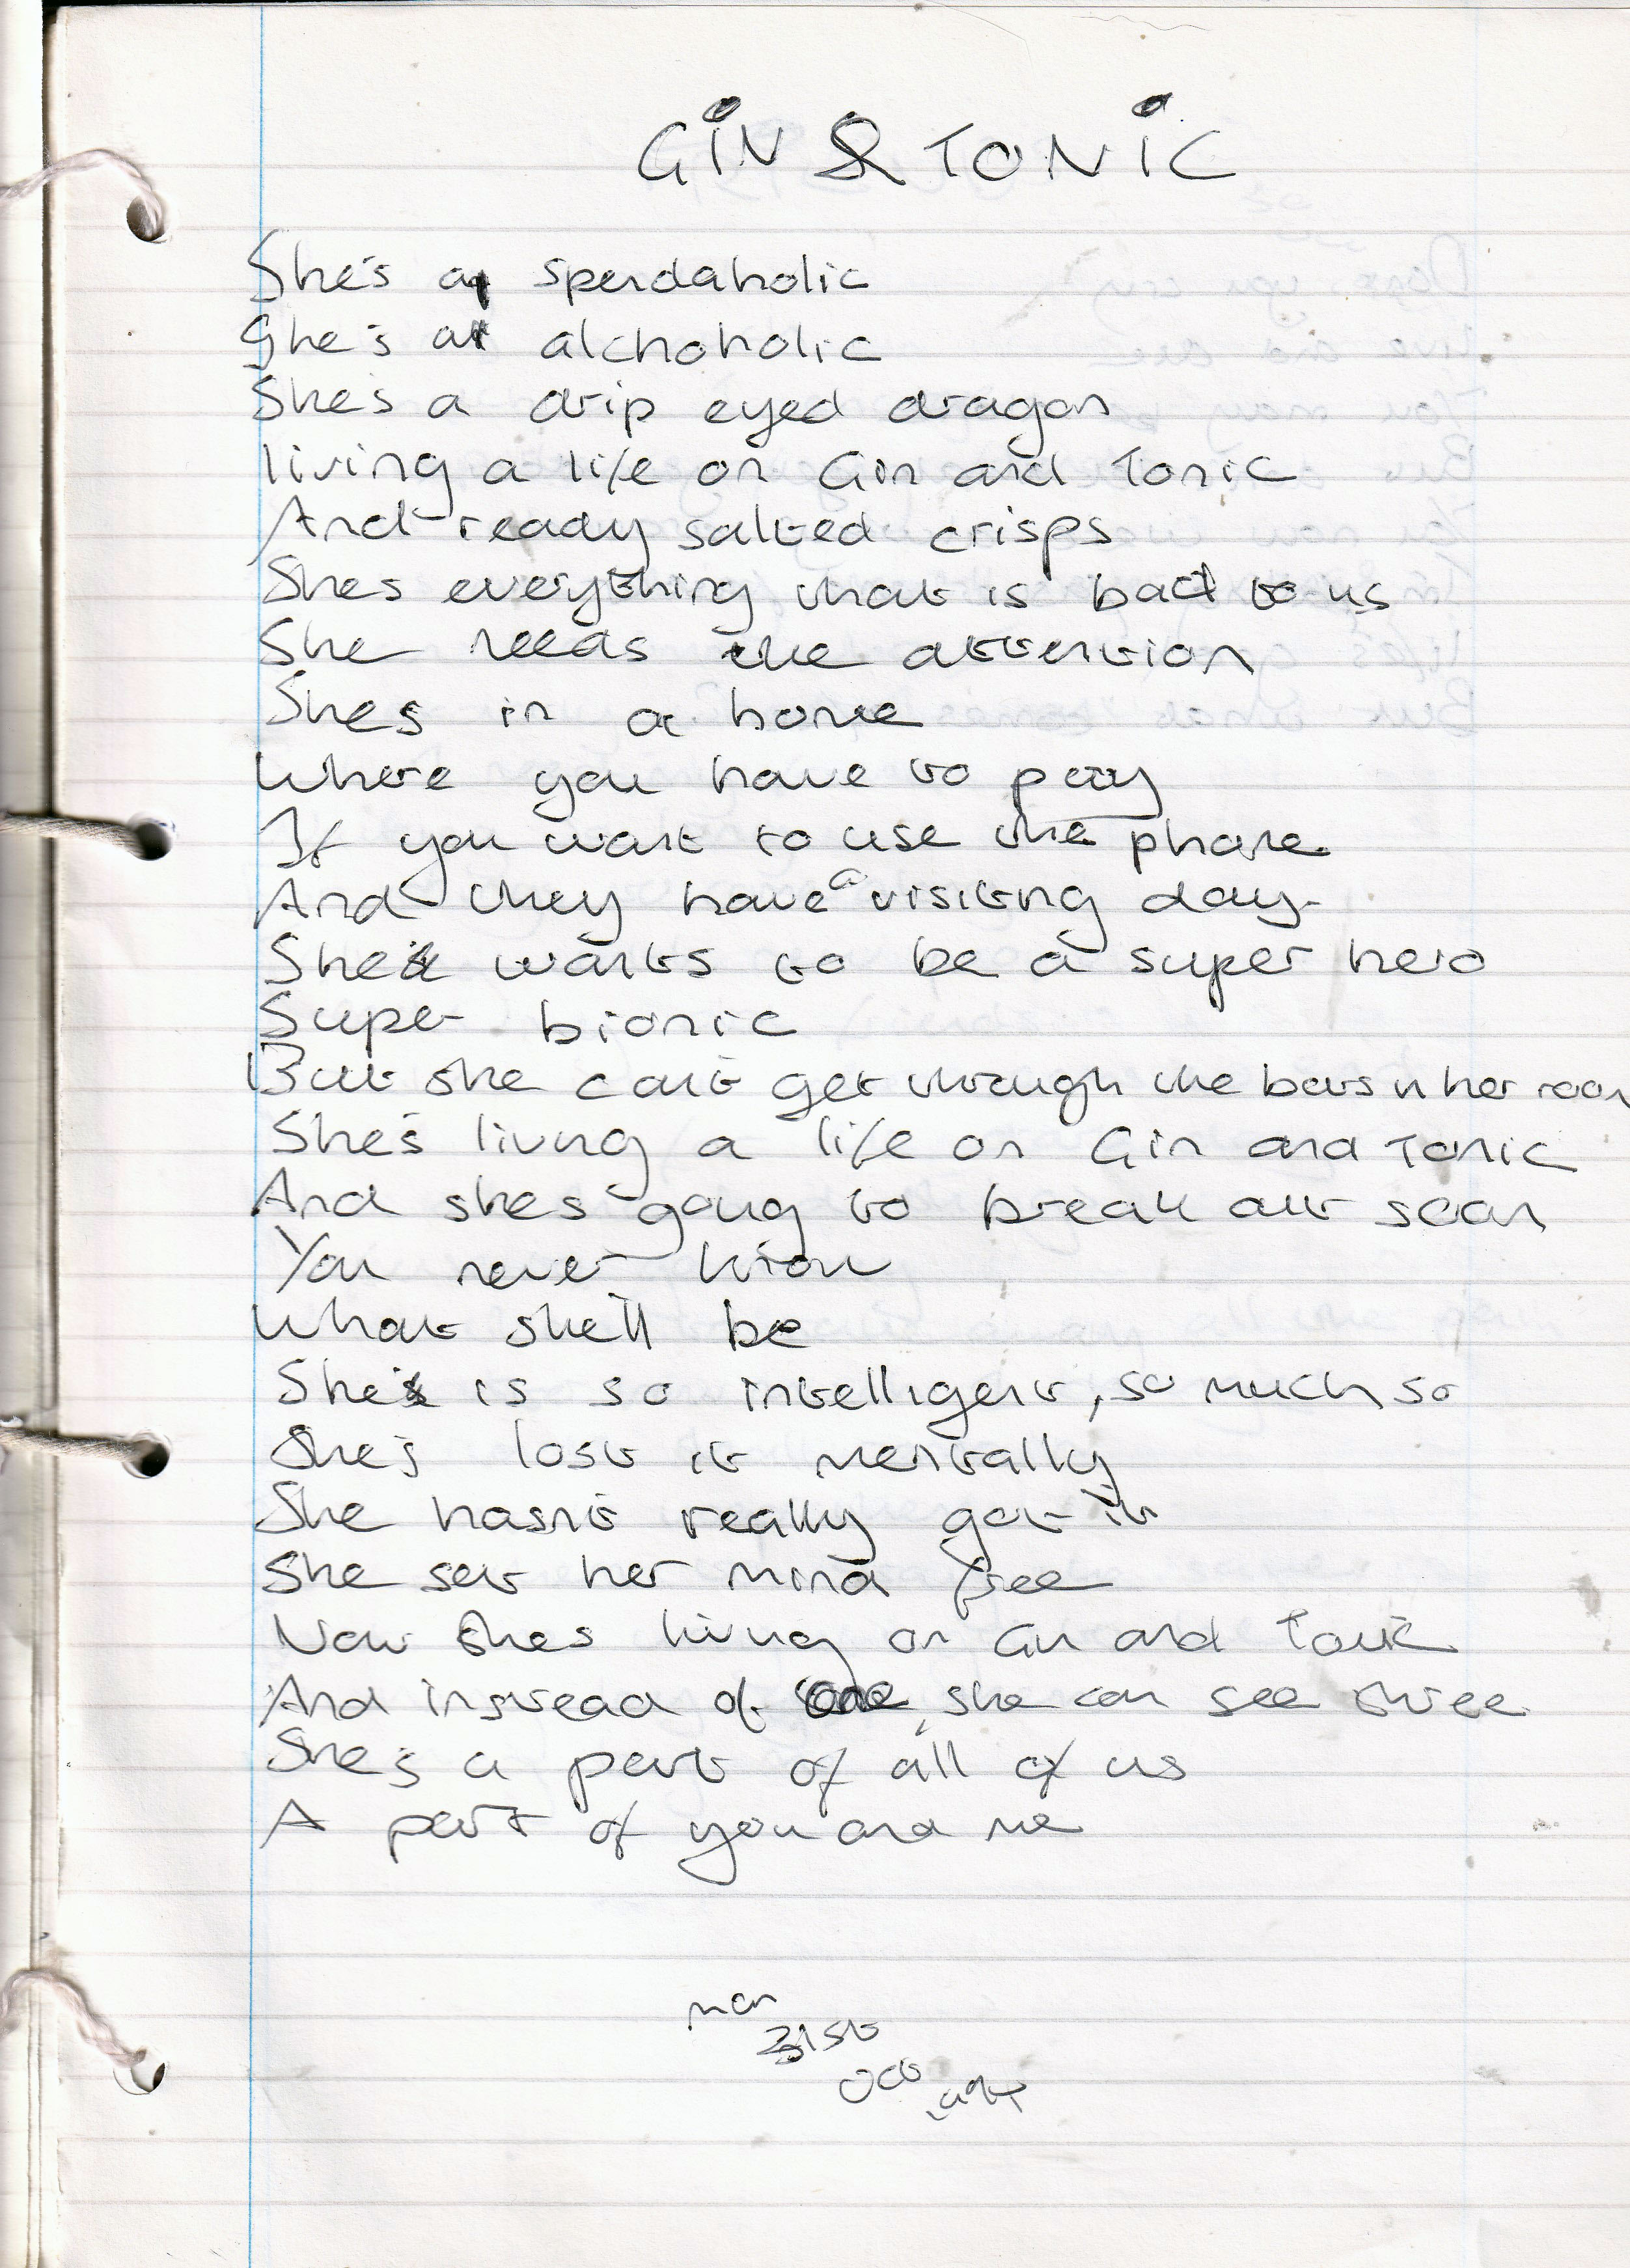 GIN & TONIC
She's a spendaholic
She's a alchoholic
She's a drip eyed dragon
living a life on Gin and Tonic
And ready salted crisps
Shes everything that is bad to us
She needs the attention
Shes in a home
Where you have to pay
If you want to use the phone
And they have a visiting day
She wants to be a super hero
Super bionic
But she can't get through the bars in her room
She's living a life on Gin and Tonic
And shes going to break out soon
You never know
What she'll be
She is so intelligent, so much so
She's lost it mentally
She hasn't really got it
She set her mind free
Now shes living on Gin and Tonic
And instead of one, she can see three
She's a part of all of us
A part of you and me
mon
31st
Oct